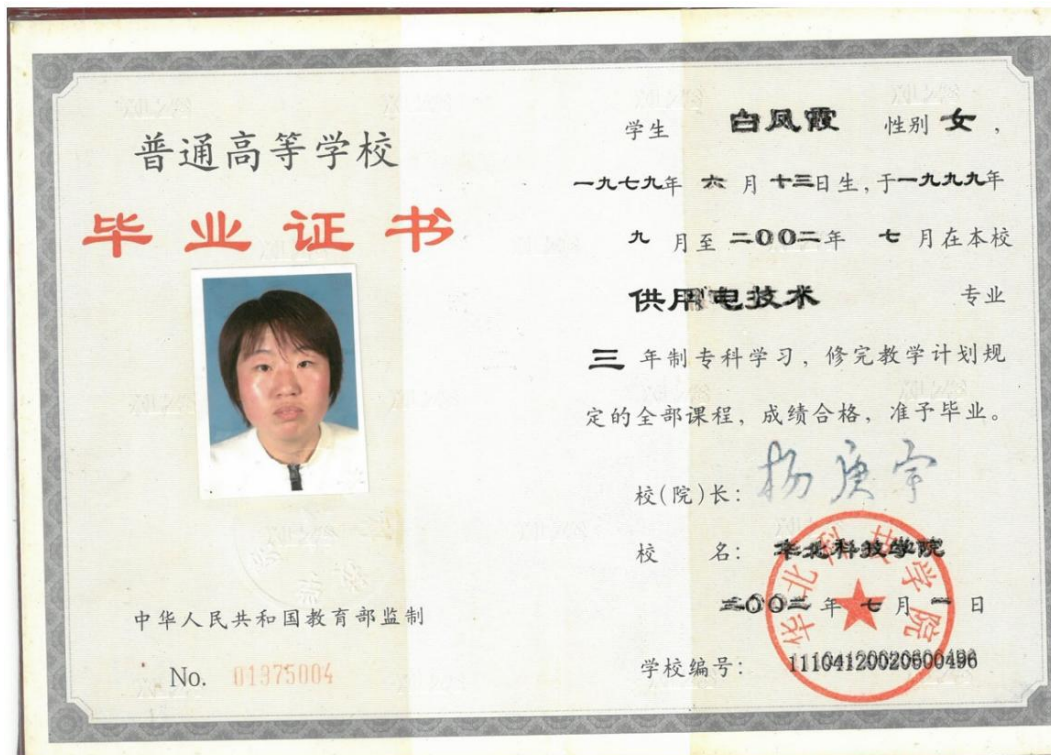 普通高等学校
毕业证书
中华人民共和国教育部监制
No. 01975004
学生 白凤霞 性别 女，
一九七九年 六 月 十三日生，于一九九九年
九 月至 二〇〇二年 七 月在本校
供用电技术 专业
三 年制专科学习，修完教学计划规
定的全部课程，成绩合格，准予毕业。
校(院)长： 杨庚宇
校 名： 华北科技学院
二〇〇二年 七 月 一 日
学校编号： 111041200206000496
华北科技学院